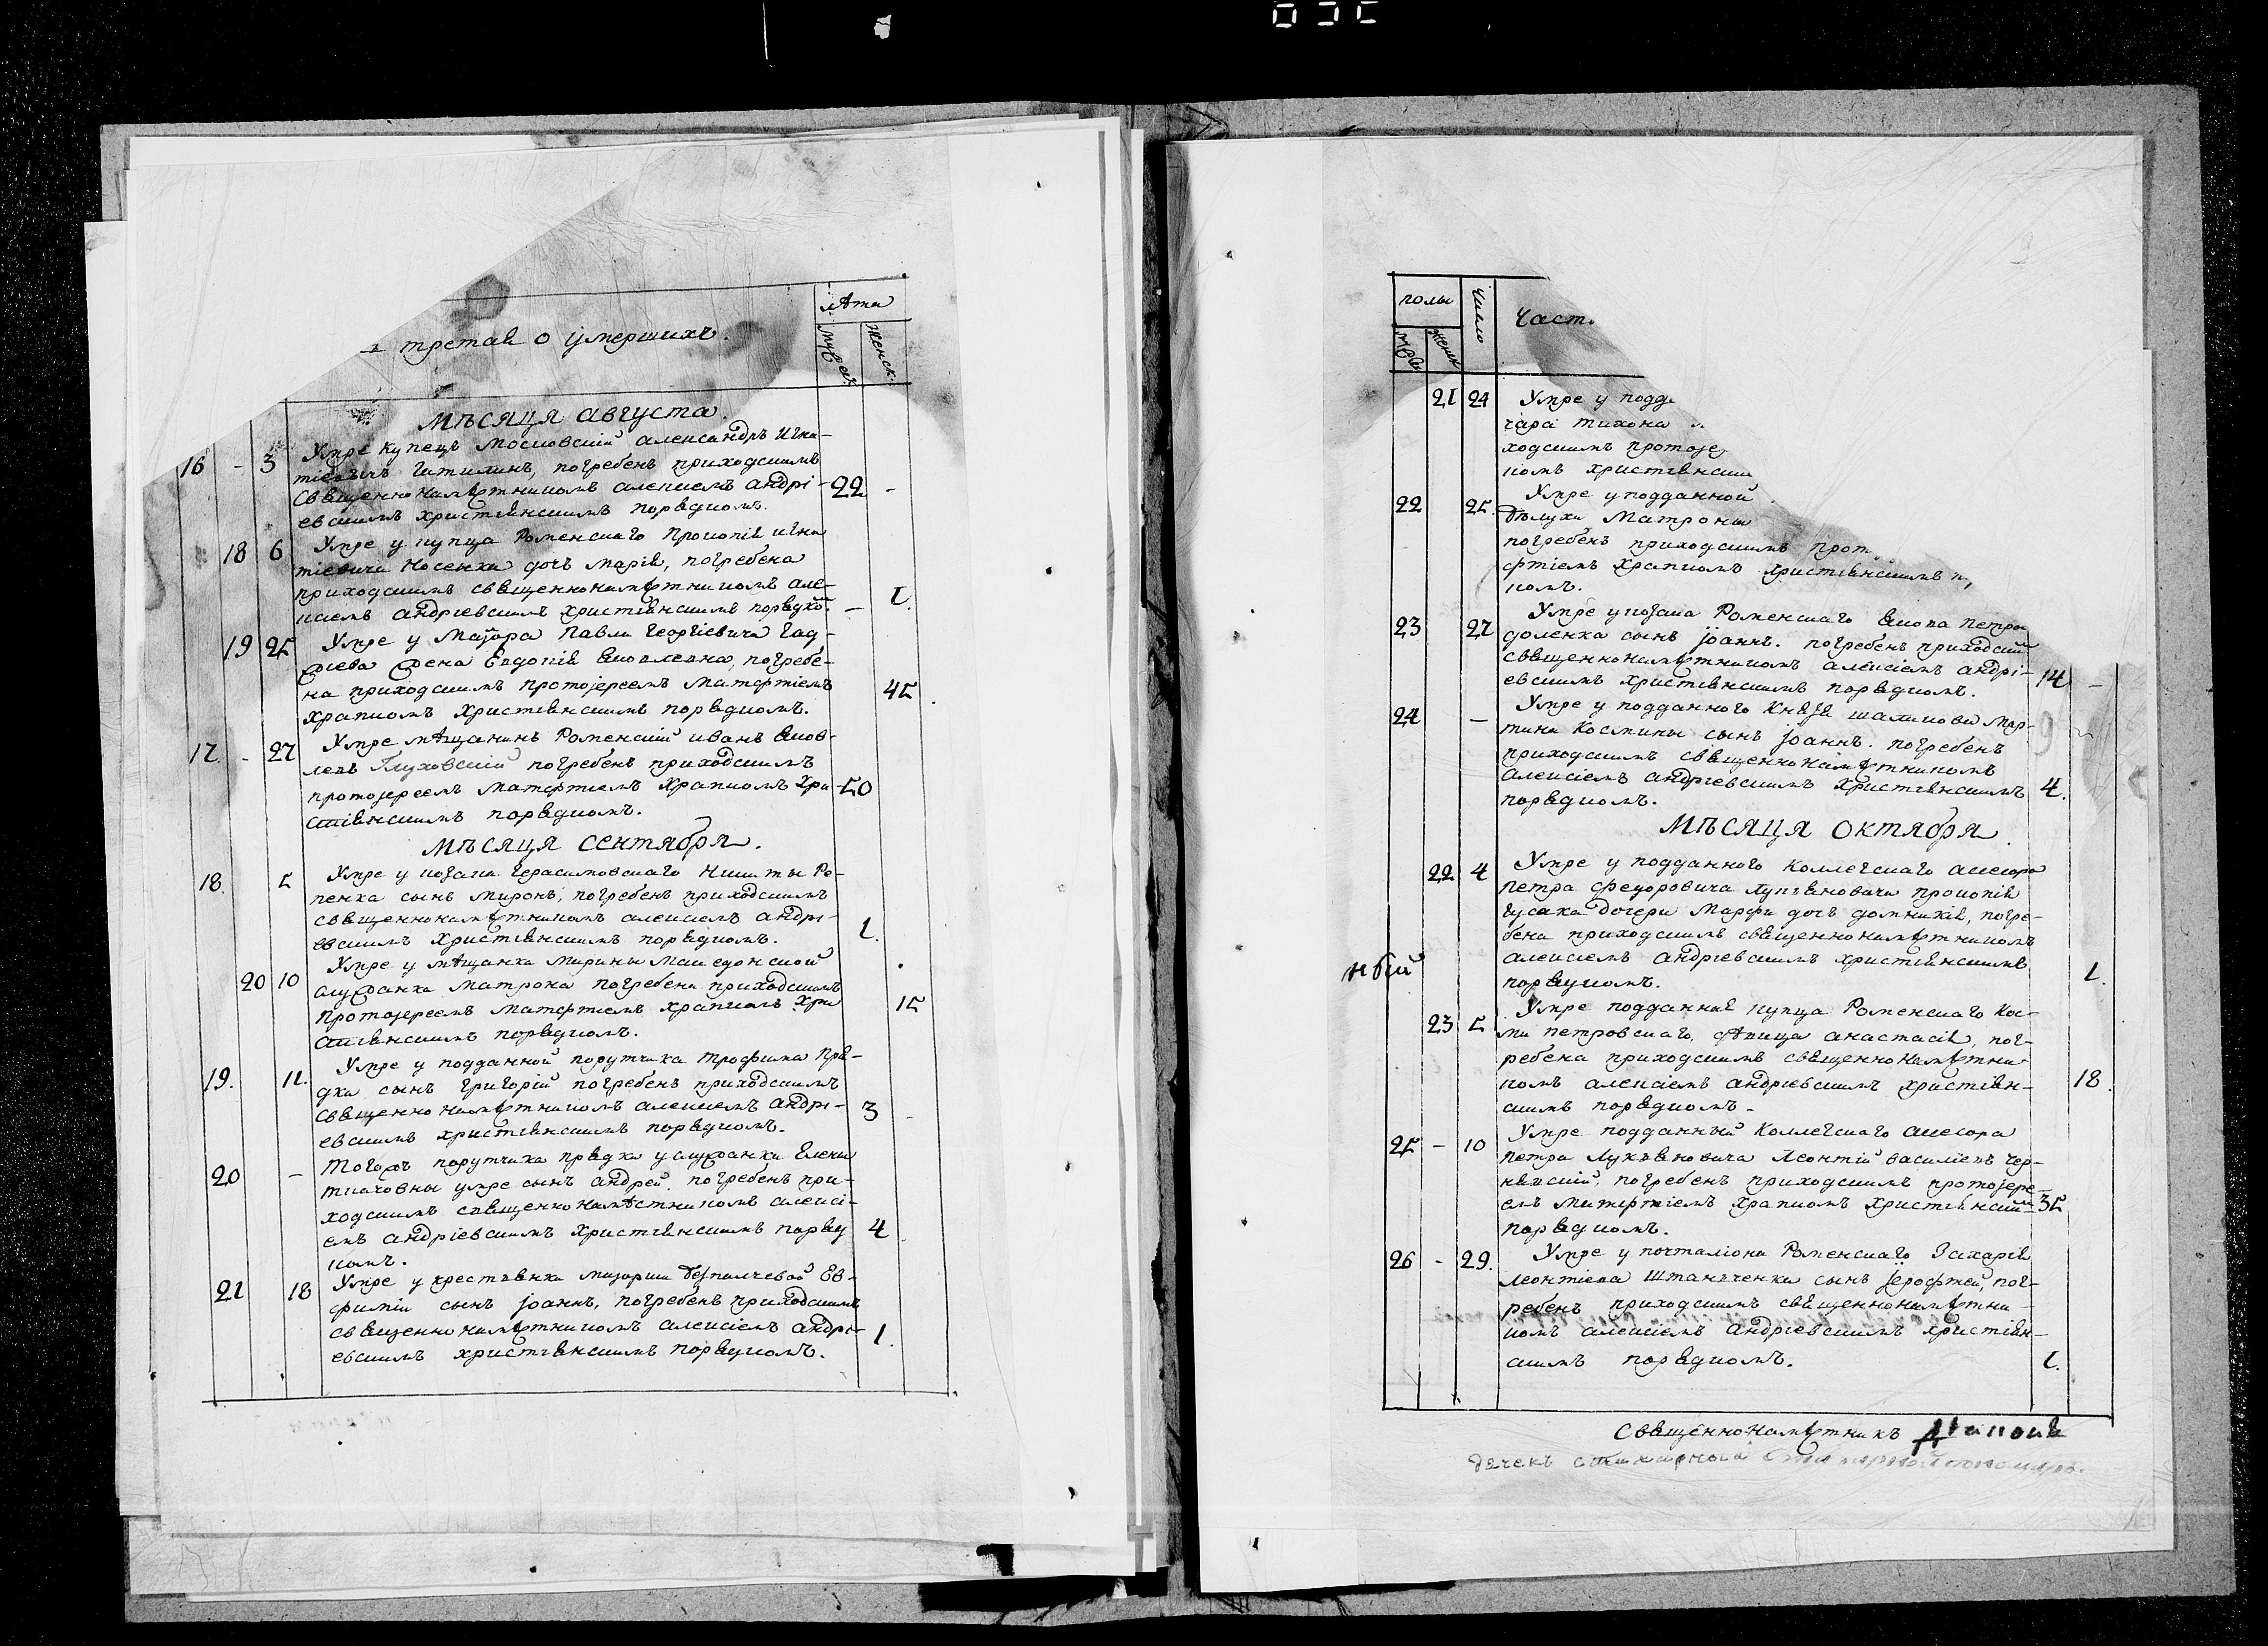 третая о ȣмершихъ.
лѣта
Мужеск.
Женск.
Мѣсяца августа.
16 - 3 Умре купецъ Московский александръ Игна-
тіевичъ погребенъ приходскимъ
священнонамѣстникомъ алексіемъ андрі- 22 -
евскимъ христіянскимъ порядкомъ.
18 6 Умре у купца Роменскаго Прокопія Игна
тіевича Носенка дочь Марія, погребена
приходскимъ священнонамѣстникомъ але-
ксіемъ андріевскимъ христіянскимъ порядко. - 1.
19 25 Умре у Маіора Павла Георгіевича Гад-
жена Евдокія Яковлевна, погребе-
на приходскимъ протоіереемъ Матфтіемъ 45
храпкомъ христіянскимъ порядкомъ.
17. - 27 Умре мѣщанинъ Роменскій иванъ Яков-
левъ Глуховскій погребенъ приходскимъ
протоіереемъ Матфтіемъ Храпкомъ Хри 50
стіянскимъ порядкомъ.
Мѣсяца сентября.
18. 5 Умре у козака Герасимовскаго Никиты Ро-
пенка сынъ Миронъ, погребенъ приходскимъ
священнонамѣстникомъ алексіемъ андрі-
евскимъ христіянскимъ порядкомъ. 1.
20 10 Умре у мѣщанки Марины Македонской
служанка Матрона погребена приходскимъ
протоіереемъ Матфтіемъ храпкомъ хри 15
стіянскимъ порядкомъ.
19. 11. Умре у подданной порутчика Трофима Пря-
дка сынъ Григорій погребенъ приходскимъ
священнонамѣстникомъ алексіемъ андрі- 3 -
евскимъ христіянскимъ порядкомъ.
20 - Тогожъ порутчика прядка у служанки Елены
умре сынъ андрей погребенъ при-
ходскимъ священнонамѣстникомъ алексі-
емъ андріевскимъ христіянскимъ поряд 4
комъ.
21 18 Умре у крестянки маіорши Безпалчевой Ев-
фиміи сынъ іоаннъ, погребенъ приходскимъ
священнонамѣстникомъ алексіемъ андрі- 1.
евскимъ христіянскимъ порядкомъ.
полы
Число
Муж
Женск
Част.
21 24 Умре у подда
чара тихона
ходскимъ протоіе
комъ христіянски
22 25. Умре у подданной
бѣлухи Матроны
погребенъ приходскимъ прот
фтіемъ Храпкомъ Христіянскимъ п
комъ.
23 27 Умре у козака Роменскаго Якова Петро
доленка сынъ іоаннъ. погребенъ приходски
священнонамѣстникомъ алексіемъ андрі-
евскимъ христіянскимъ порядкомъ. 14 -
24 - Умре у подданного Князя шахинова Мар-
тина Космины сынъ іоаннъ. погребенъ
приходскимъ священнонамѣстникомъ
алексіемъ андріевскимъ Христіянскимъ 4.
порядкомъ.
Мѣсяца октября.
22 4 Умре у подданного Коллегскаго асесора
Петра Федоровича Лукіяновича прокопія
Гусака дочери Марфи дочь домникія, погре-
бена приходскимъ священнонамѣстникомъ
алексіемъ андріевскимъ христіянскимъ
порядкомъ. 1.
23 5 Умре подданная купца Роменскаго Кос-
ми петровскаго, дѣвица анастасія, пог-
ребена приходскимъ священнонамѣстни-
комъ алексіемъ андріевскимъ христіян- 18.
скимъ порядкомъ.
25 - 10 Умре подданный Коллегскаго асесора
петра Лукіяновича Леонтій василіевъ Чер-
нявскій, погребенъ приходскимъ протоіере-
емъ матфтіемъ храпкомъ христіянским 35
порядкомъ.
26 - 29. Умре у почталіона Роменскаго Захарія
леонтіева Штанченка сынъ іерофтей, пог-
ребенъ приходскимъ священнонамѣстни-
комъ алексіемъ андріевскимъ христіян-
скимъ порядкомъ. 1.
Священнонамѣстникъ
дячекъ стихарной